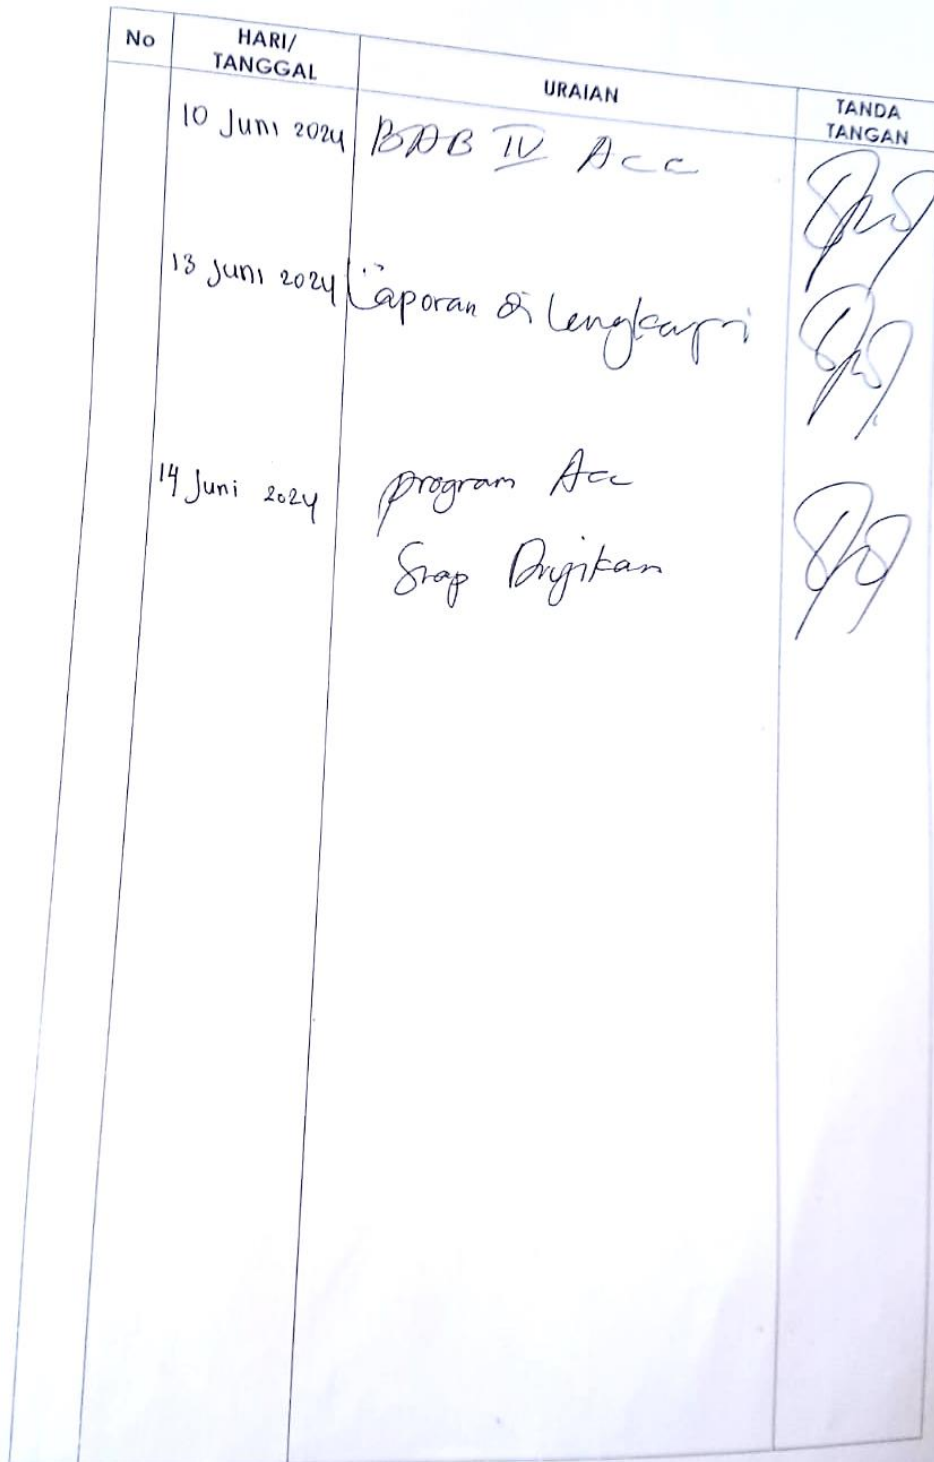 No HARI/ TANGGAL URAIAN TANDA TANGAN
10 Juni 2024 BAB IV Acc
13 Juni 2024 Laporan di lengkapi
14 Juni 2024 program Acc
Siap Diujikan